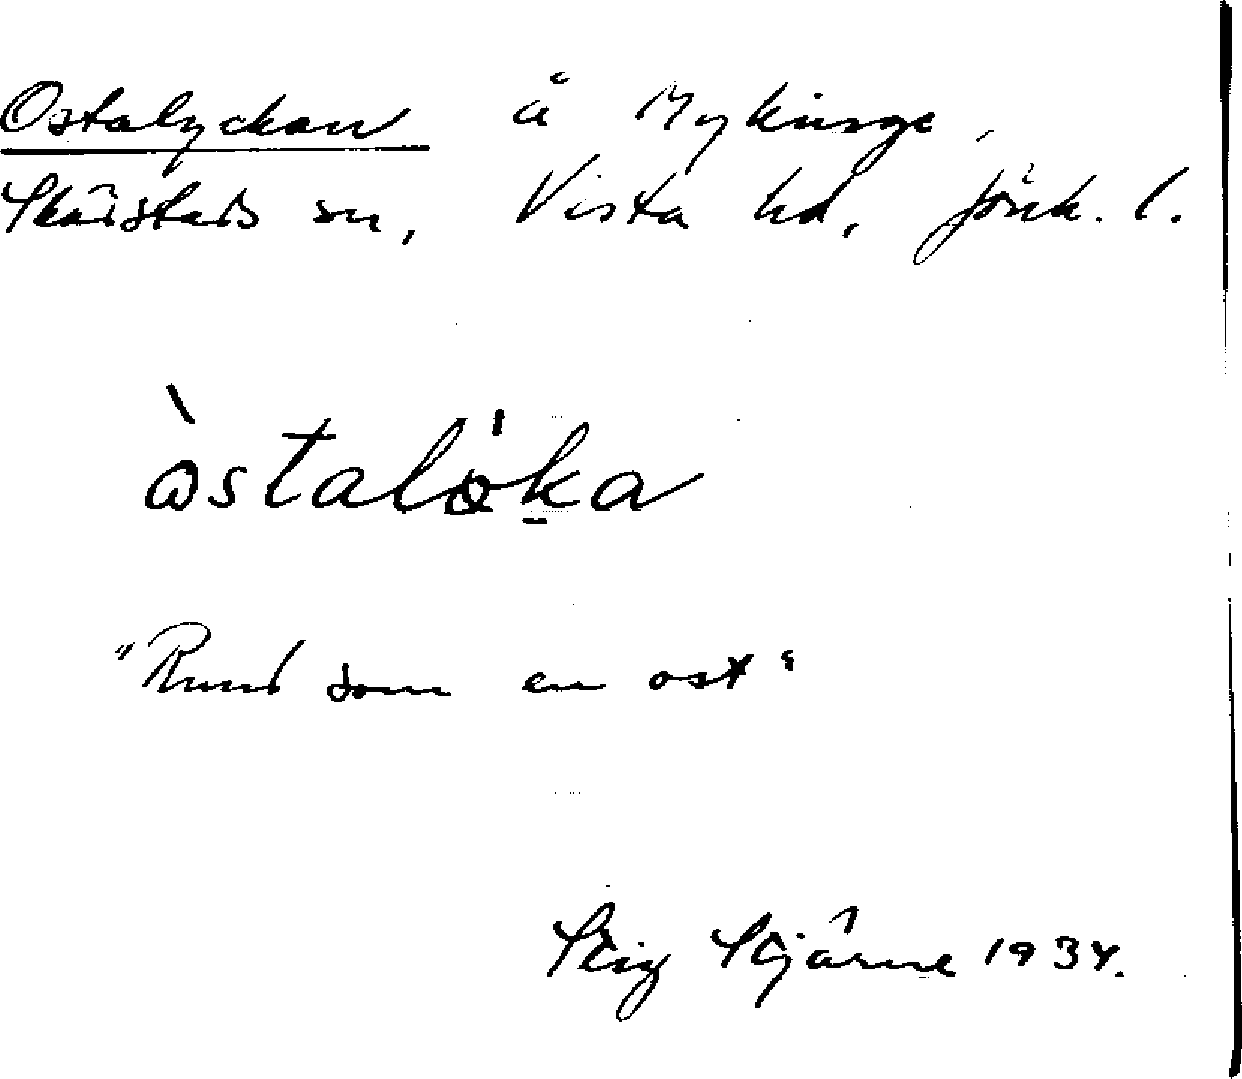 Ostalyckan å Mykinge,
Skärstads sn, Vista hd, Jönk. l.
òstalö́ka
"Rund som en ost"
Stig Stjärne 1934.